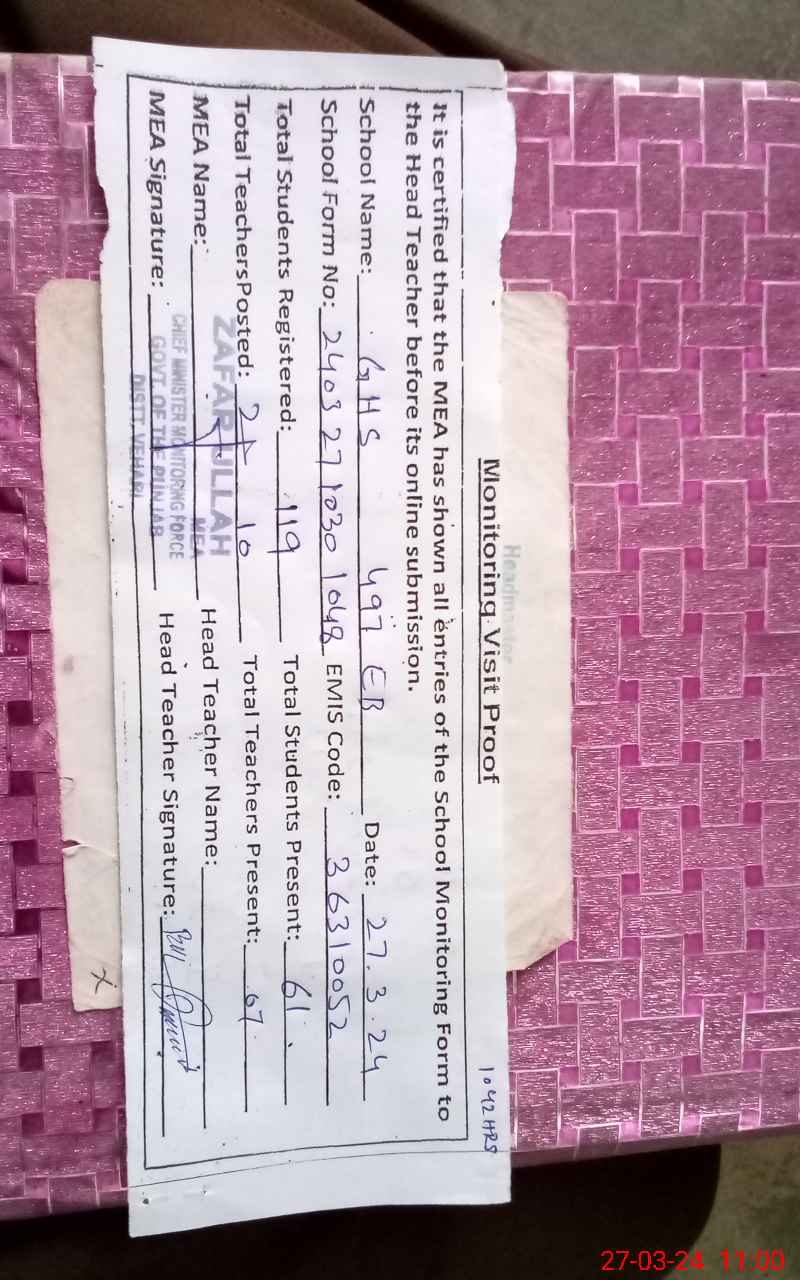 Headmaster
Monitoring Visit Proof
1042 HRS
It is certified that the MEA has shown all entries of the School Monitoring Form to
the Head Teacher before its online submission.
School Name: GHS 497 EB Date: 27.3.24
School Form No: 2403271030 1048 EMIS Code: 36310052
Total Students Registered: 119 Total Students Present: 61
Total TeachersPosted: 10 Total Teachers Present: 07
MEA Name: ZAFAR ULLAH Head Teacher Name:
MEA
CHIEF MINISTER MONITORING FORCE
MEA Signature: Head Teacher Signature:
GOVT. OF THE PUNJAB
DISTT. VEHARI
27-03-24 11:00